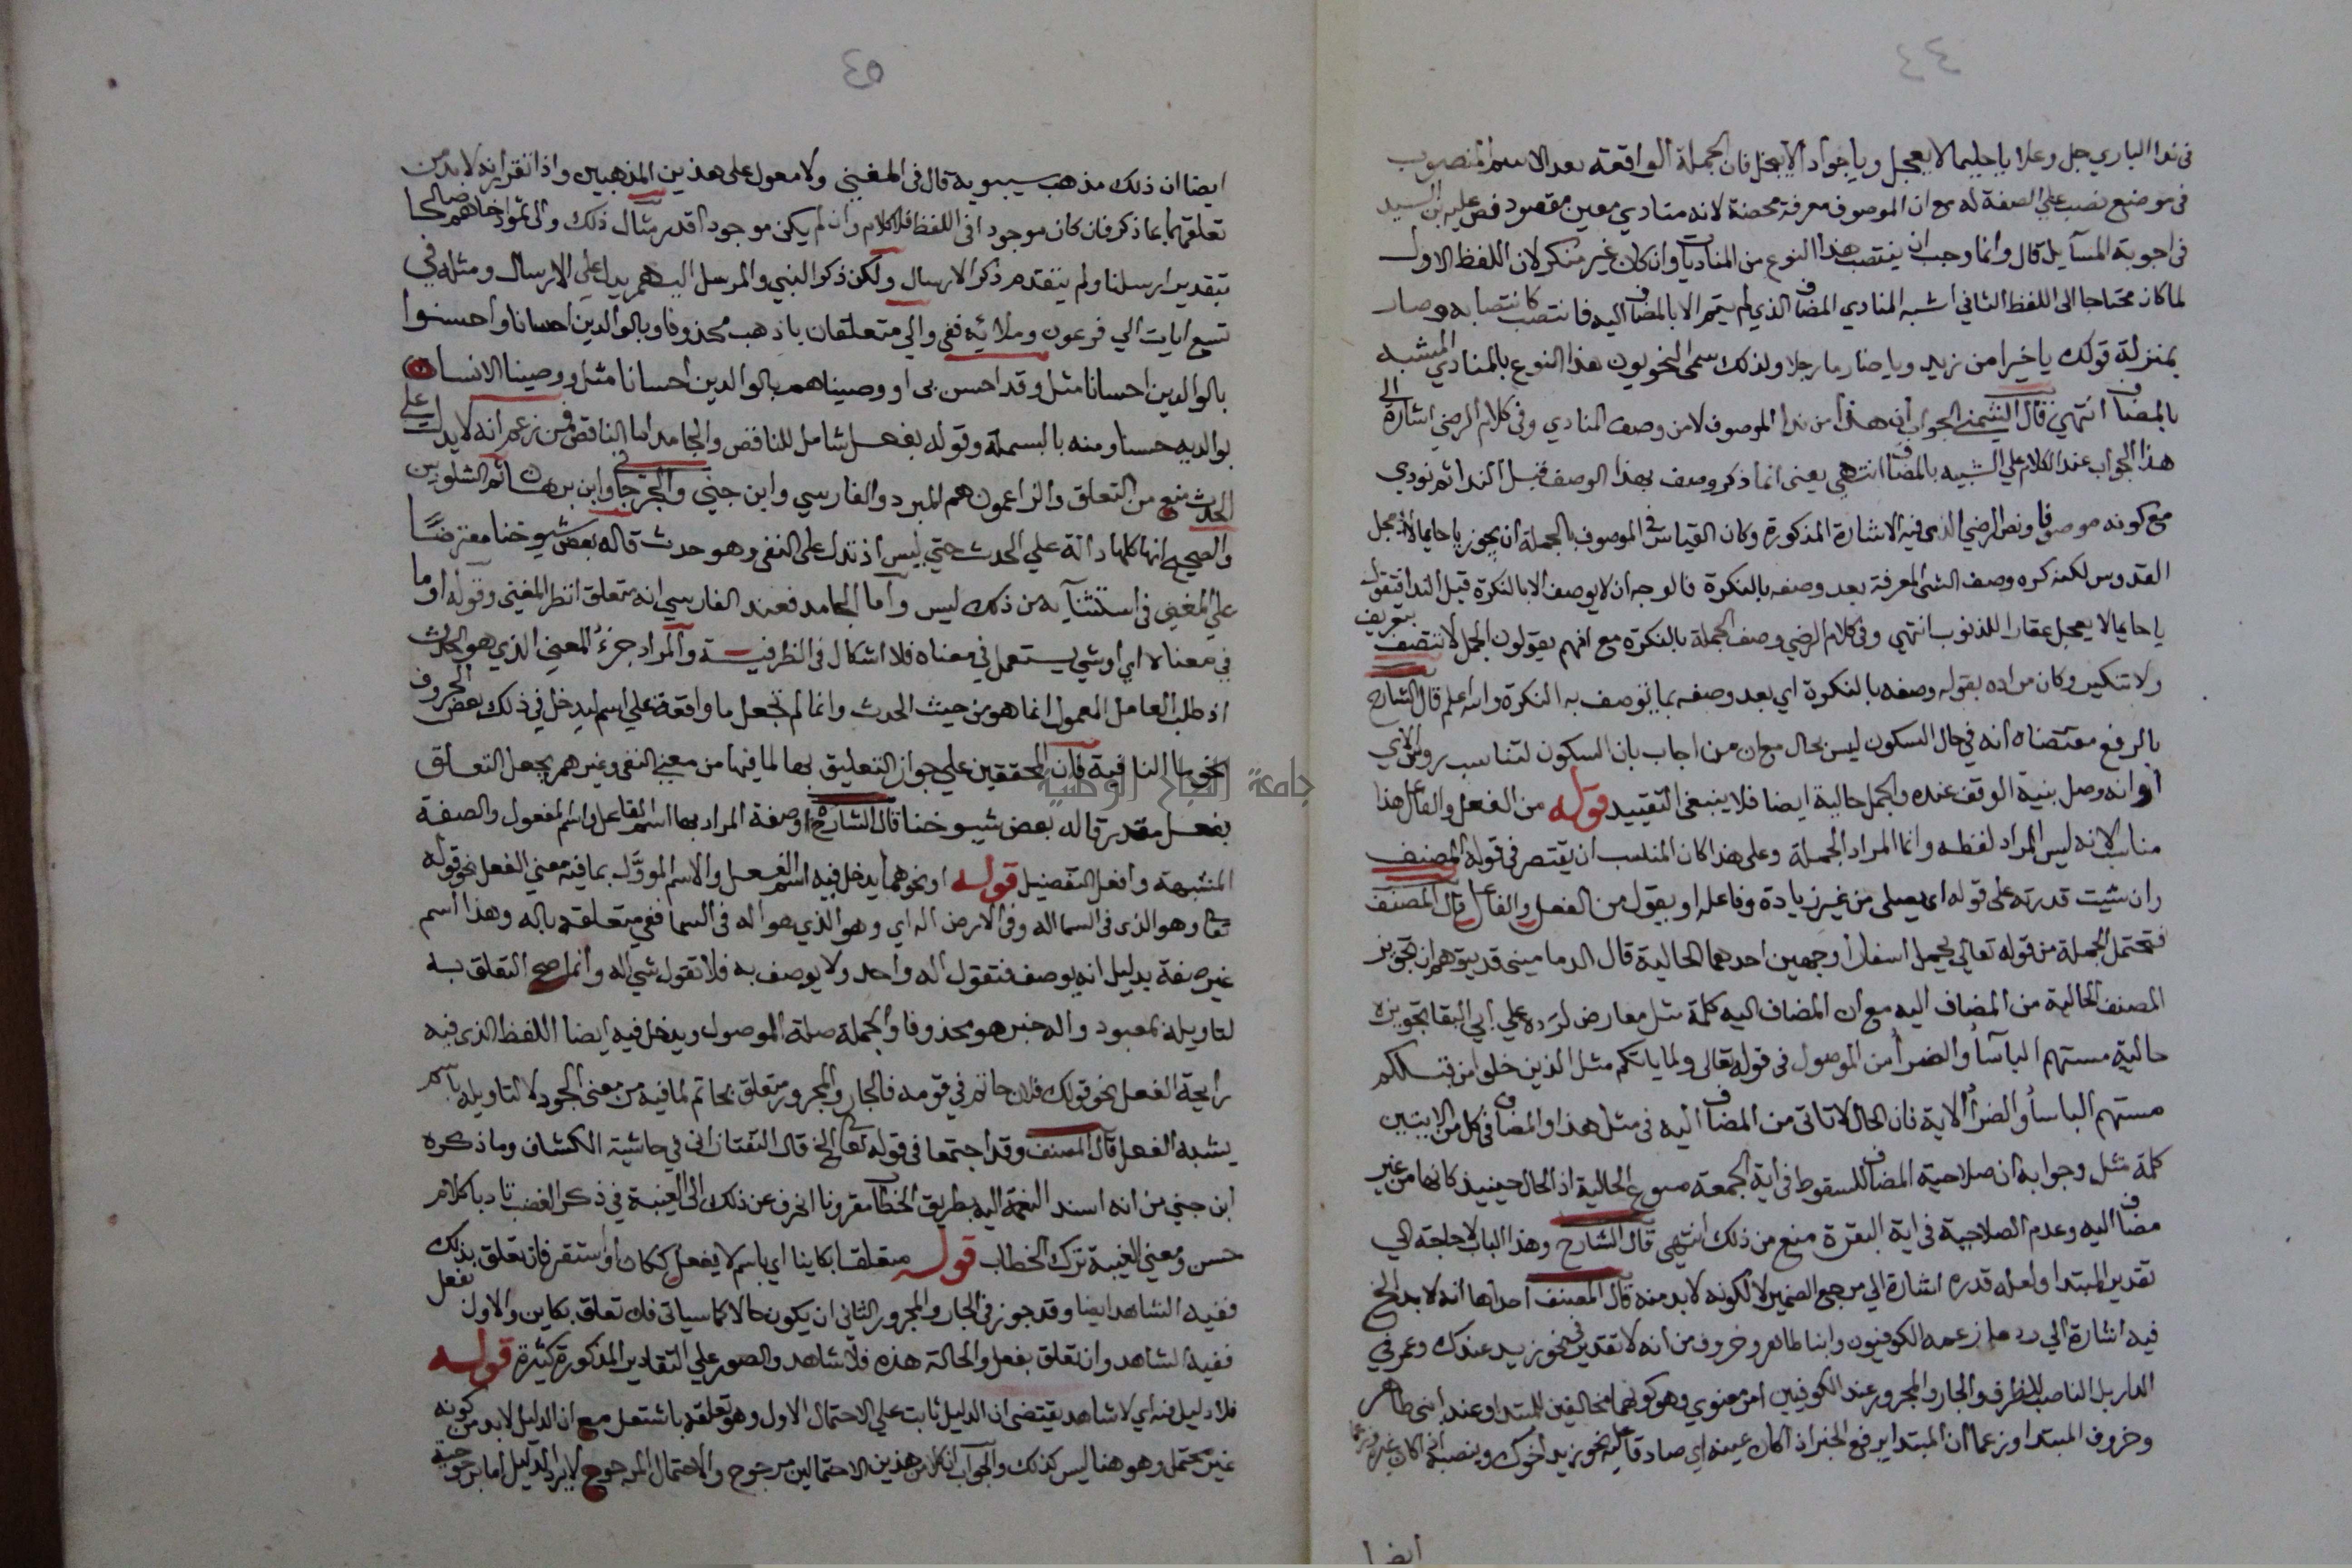 ٤٤
فى ندا الباري جل وعلا يا حليما لا يعجل ويا جواد الا يبخل فان الجملة الواقعة بعد الاسم المنصوب
فى موضع نصب على الصفة له مع ان الموصوف معرفة محضة لانه منادي معين مقصود نص عليه ابن السيد
فى اجوبة المسآيل قال وانما وجب ان ينتصب هذا النوع من المناديات وان كان غير منكر لان اللفظ الاول
لما كان محتاجا الى اللفظ الثاني اشبه المنادي المضاف الذي لم يتم الا بالمضاف اليه فانتصب كانتصابه وصار
بمنزلة قولك يا خيرا من زيد ويا ضاربا رجلا ولذلك سمى النحويون هذا النوع بالمنادي المشبه
بالمضاف انتهي قال الشمني الجواب ان هذا من ندا الموصوف لا من وصف المنادي وفى كلام الرضى اشارة الى
هذا الجواب عند الكلام على الشبيه بالمضاف انتهى يعنى انما ذكر وصف بهذا الوصف قبل الندا ثم نودي
مع كونه موصوفا ونص الرضي الذى فيه الاشارة المذكورة وكان القياس فى الموصوف بالجملة ان يجوز يا حليما لا يعجل
القدوس لكنه كره وصف الشئ بالمعرفة بعد وصفه بالنكرة فالوجه ان لا يوصف الا بالنكرة قبل الندا فتقول
يا حليما لا يعجل غفارا للذنوب انتهي وفى كلام الرضي وصف الجملة بالنكرة مع انهم يقولون الجمل لا تتصف بتعريف
ولا تنكير وكان مراده بقوله وصفه بالنكرة اي بعد وصفه بما توصف به النكرة والله اعلم قال الشارح
بالرفع مقتضاه انه في حال السكون ليس بحال مع ان من اجاب بان السكون لتناسب روس الاي
او انه وصل بنية الوقف عنده والجمل حالية ايضا فلا ينبغى التقييد قوله من الفعل والفاعل هذا
مناسب لانه ليس المراد لفظه وانما المراد الجملة وعلى هذا كان المناسب ان يقتصر فى قوله المصنف
وان شيت قدرته على قوله اى يصلى من غير زيادة وفاعله او يقول من الفعل والفاعل قال المصنف
فتحتمل الجملة من قوله تعالي يحمل اسفارا وجهين احدهما الحالية قال الدمامينى قد يتوهم ان تجويز
المصنف الحالية من المضاف اليه مع ان المضاف اليه كلمة مثل معارض لرده على ابي البقا تجويزه
حالية مستهم الباسآ والضرآ من الموصول فى قوله تعالى ولما ياتكم مثل الذين خلوا من قبلكم
مستهم الباسآ والضرآ الاية فان الحال لا تاتى من المضاف اليه فى مثل هذا والمضاف فى كل من الايتين
كلمة مثل وجوابه ان صلاحية المضاف للسقوط فى اية الجمعة مسوغ الحالية اذ الحال حينيذ كانها من غير
مضاف اليه وعدم الصلاحية فى اية البقرة منع من ذلك انتهي قال الشارح وهذا الباب لا حاجة الي
تقدير المبتدا ولعله قدره اشارة الي مرجع الضمير لا لكونه لا بد منه قال المصنف احداها انه لا بد الخ
فيه اشارة الي رد ما زعمه الكوفيون وابنا طاهر وخروف من انه لا تقدير فى نحو زيد عندك وعمر في
الدار بل الناصب للظرف والجار والمجرور عند الكوفيين امر معنوي وهو كونهما مخالفين للمبتدا وعند ابنى طاهر
وخروف المبتدا وزعما ان المبتدا يرفع الخبر اذا كان عينه اي صادقا عليه نحو زيد اخوك وينصبه اذا كان غيره وزعما
ايضا
٤٥
ايضا ان ذلك مذهب سيبويه قال فى المغني ولا معول على هذين المذهبين واذا تقرر انه لا بد من
تعلقهما بما ذكر فان كان موجودا فى اللفظ فلا كلام وان لم يكن موجودا قدر مثال ذلك والى ثمود اخاهم صالحا
بتقدير ارسلنا ولم يتقدم ذكر الارسال ولكن ذكر النبي والمرسل اليهم يدل على الارسال ومثله في
تسع ايات الي فرعون وملائه ففى والي متعلقان باذهب محذوفا وبالوالدين احسانا واحسنوا
بالوالدين احسانا مثل وقد احسن بى او وصيناهم بالوالدين احسانا مثل ووصينا الانسان
بوالديه حسنا ومنه بالبسملة وقوله بفعل شامل للناقص والجامد اما الناقص فمن زعم انه لا يدل على
الحدث منع من التعلق والزاعمون هم المبرد والفارسي وابن جني والجرجاني وابن برهان ثم الشلوبين
والصحيح انها كلها دالة علي الحدث حتي ليس اذ تدل على النفى وهو حدث قاله بعض شيوخنا معترضًا
على المغني فى استثنآيه من ذلك ليس وآما الجامد فعند الفارسي انه متعلق انظر المغني وقوله او ما
في معناه اي او شي يستعمل في معناه فلا اشكال فى الظرفية والمراد جزء المعني الذي هو الحدث
اذ طلب العامل المعمول انما هو من حيث الحدث وانما لم تجعل ما واقعة على اسم ليدخل في ذلك بعض الحروف
نحو ما النافية فان المحققين علي جواز التعليق بها لما فيها من معني النفى وغيرهم يجعل التعلق
بفعل مقدر قاله بعض شيوخنا قال الشارح اوصفة المراد بها اسم الفاعل واسم المفعول والصفة
المشبهة وافعل التفضيل قوله او نحوهما يدخل فيه اسم الفعل والاسم المووَّل بما فيه معني الفعل نحو قوله
تعالى وهو الذى فى السما اله وفى الارض اله اي وهو الذي هو اله فى السما ففى متعلقة باله وهذا اسم
غير صفة بدليل انه يوصف فتقول اله واحد ولا يوصف به فلا تقول شي اله وانما صح التعلق به
لتاويله بمعبود واله خبر هو محذوفا والجملة صلة الموصول ويدخل فيه ايضا اللفظ الذى فيه
رايحة الفعل نحو قولك فلان حاتم في قومه فالجار والمجرور متعلق بحاتم لما فيه من معنى الجود لا لتاويله باسم
يشبه الفعل قال المصنف وقد اجتمعا فى قوله تعالى الخ قال التفتازانى في حاشية الكشاف وما ذكره
ابن جني من انه اسند النعمة اليه بطريق الخطاب مقرونا انحرف عن ذلك الى الغيبة في ذكر الغضب تادبا كلام
حسن ومعني الغيبة ترك الخطاب قوله متعلقا بكاينا اي باسم لا بفعل ككان او استقر فان تعلق بذلك
ففيه الشاهد ايضا وقد جوز في الجار والمجرور الثاني ان يكون حالا كما سياتى فان تعلق بكاين والاول بفعل
ففيه الشاهد وان تعلق بفعل والحالة هذه فلا شاهد والصور علي التقادير المذكورة كثيرة قوله
فلا دليل فيه اي لا شاهد يقتضى ان الدليل ثابت علي الاحتمال الاول وهو تعلقه باشتعل مع ان الدليل لا بد من كونه
غير محتمل وهو هنا ليس كذلك والجواب ان كلا من هذين الاحتمالين مرجوح والاحتمال المرجوح لا يرد الدليل اما مرجوحية
جامعة النجاح الوطنية